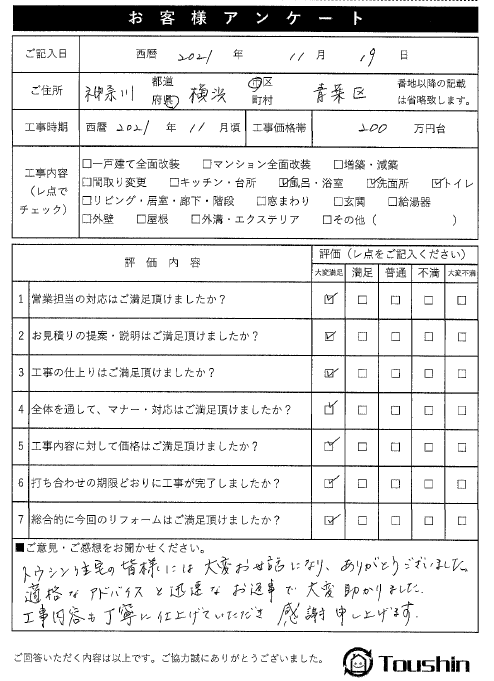 お客様アンケート
ご記入日 西暦 2021 年 11 月 19 日
ご住所 神奈川 都道府県 横浜 市区町村 青葉区 番地以降の記載は省略致します。
工事時期 西暦 2021 年 11 月頃 工事価格帯 200 万円台
工事内容（レ点でチェック）
□一戸建て全面改装 □マンション全面改装 □増築・減築
□間取り変更 □キッチン・台所 ☑風呂・浴室 ☑洗面所 ☑トイレ
□リビング・居室・廊下・階段 □窓まわり □玄関 □給湯器
□外壁 □屋根 □外溝・エクステリア □その他（ ）
評価内容 評価（レ点をご記入ください）
大変満足 満足 普通 不満 大変不満
1 営業担当の対応はご満足頂けましたか？ ☑ □ □ □ □
2 お見積りの提案・説明はご満足頂けましたか？ ☑ □ □ □ □
3 工事の仕上りはご満足頂けましたか？ ☑ □ □ □ □
4 全体を通して、マナー・対応はご満足頂けましたか？ ☑ □ □ □ □
5 工事内容に対して価格はご満足頂けましたか？ ☑ □ □ □ □
6 打ち合わせの期限どおりに工事が完了しましたか？ ☑ □ □ □ □
7 総合的に今回のリフォームはご満足頂けましたか？ ☑ □ □ □ □
■ご意見・ご感想をお聞かせください。
トウシン住宅の皆様には大変お世話になり、ありがとうございました。
適格なアドバイスと迅速なお返事で大変助かりました。
工事内容も丁寧に仕上げていただき感謝申し上げます。
ご回答いただく内容は以上です。ご協力誠にありがとうございました。
Toushin